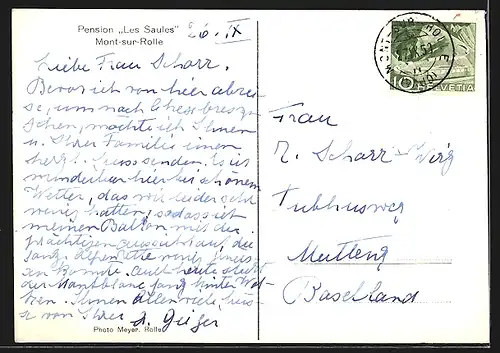 Pension „Les Saules"
Mont-sur-Rolle
26. IX
Liebe Frau Scharr.
Bevor ich von hier abrei-
se, um nach zu
schen, möchte ich Ihnen
u. Ihrer Familie einen
herzl. Gruss senden. Es ist
wunderbar hier bei schönem
Wetter, das wir leider sehr
wenig hatten, sodass ich
meinen Balkon mit der
prächtigen Aussicht auf die
ganz. Alpenkette wenig
konnte. Auch heute steckt
der Montblanc ganz hinter Wol-
ken. Ihnen Allen viele Grüs-
se von Ihrer A. Geiger
Photo Meyer, Rolle
HELVETIA
10
Frau
Scharr-
Muttenz
Baselland